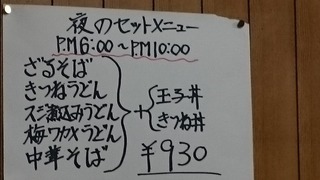 夜のセットメニュー
P.M6:00～P.M10:00
ざるそば
きつねうどん
スジ煮込みうどん
梅ワカメうどん
中華そば
+
玉子丼
きつね丼
¥930